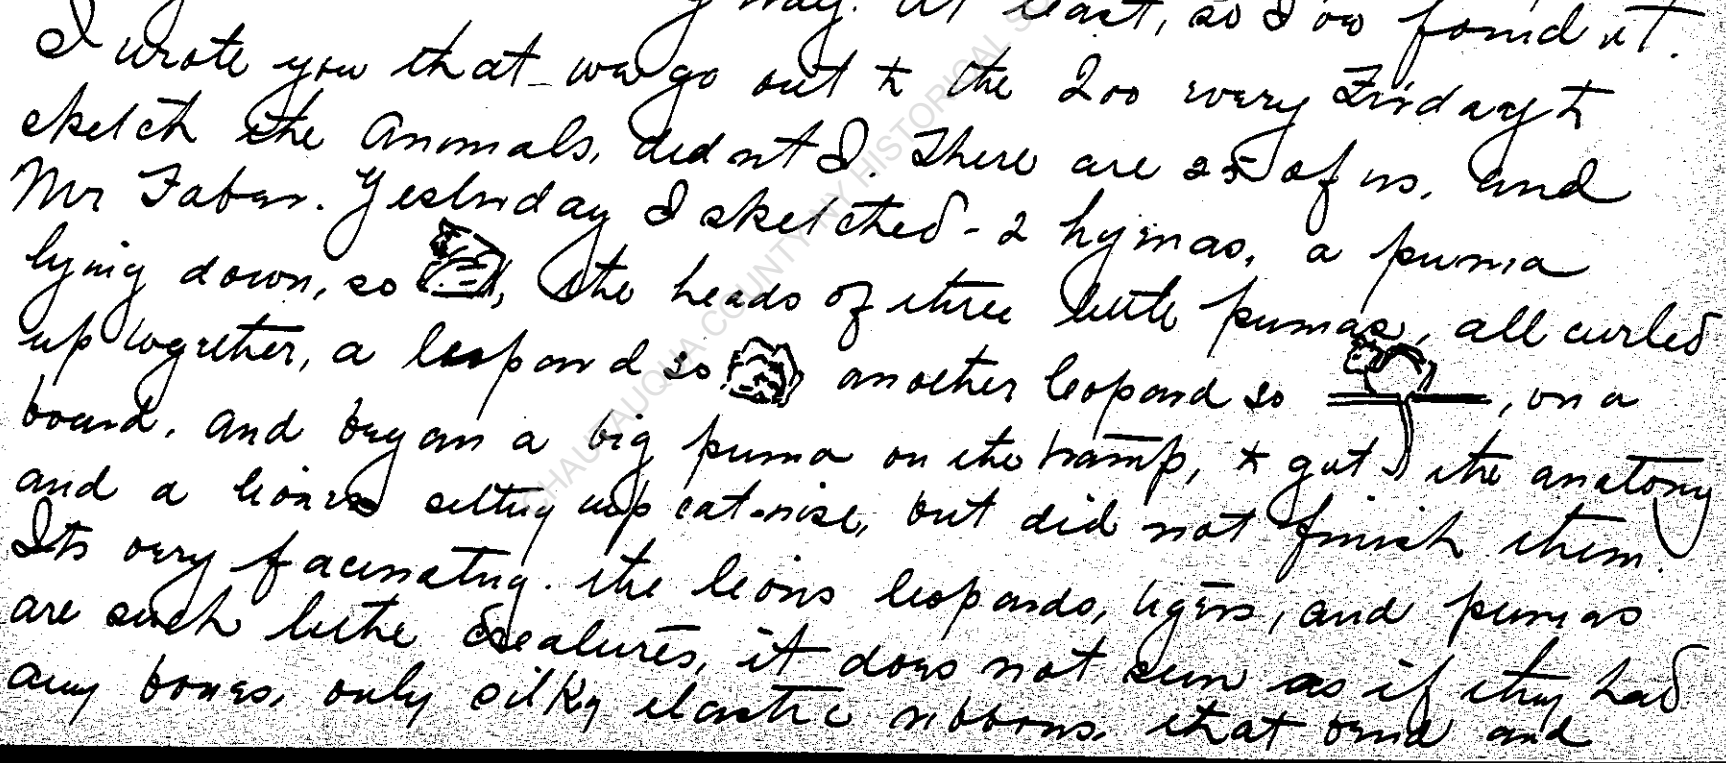 way. At least, so I have found it.
I wrote you that we go out to the Zoo every Friday to
sketch the animals, didnt I. There are 25 of us, and
Mr Faber. Yesterday I sketched - 2 hyenas, a puma
lying down, so , the heads of three little pumas, all curled
up together, a leopard so another leopard so , on a
board, and began a big puma on the tramp, & got the anatomy
and a lioness sitting up cat-wise, but did not finish them.
Its very facinating. the lions leopards, tigers, and pumas
are such lithe creatures, it does not seem as if they had
any bones, only silky elastic ribbons, that bend and
CHAUTAUQUA COUNTY NY HISTORICAL